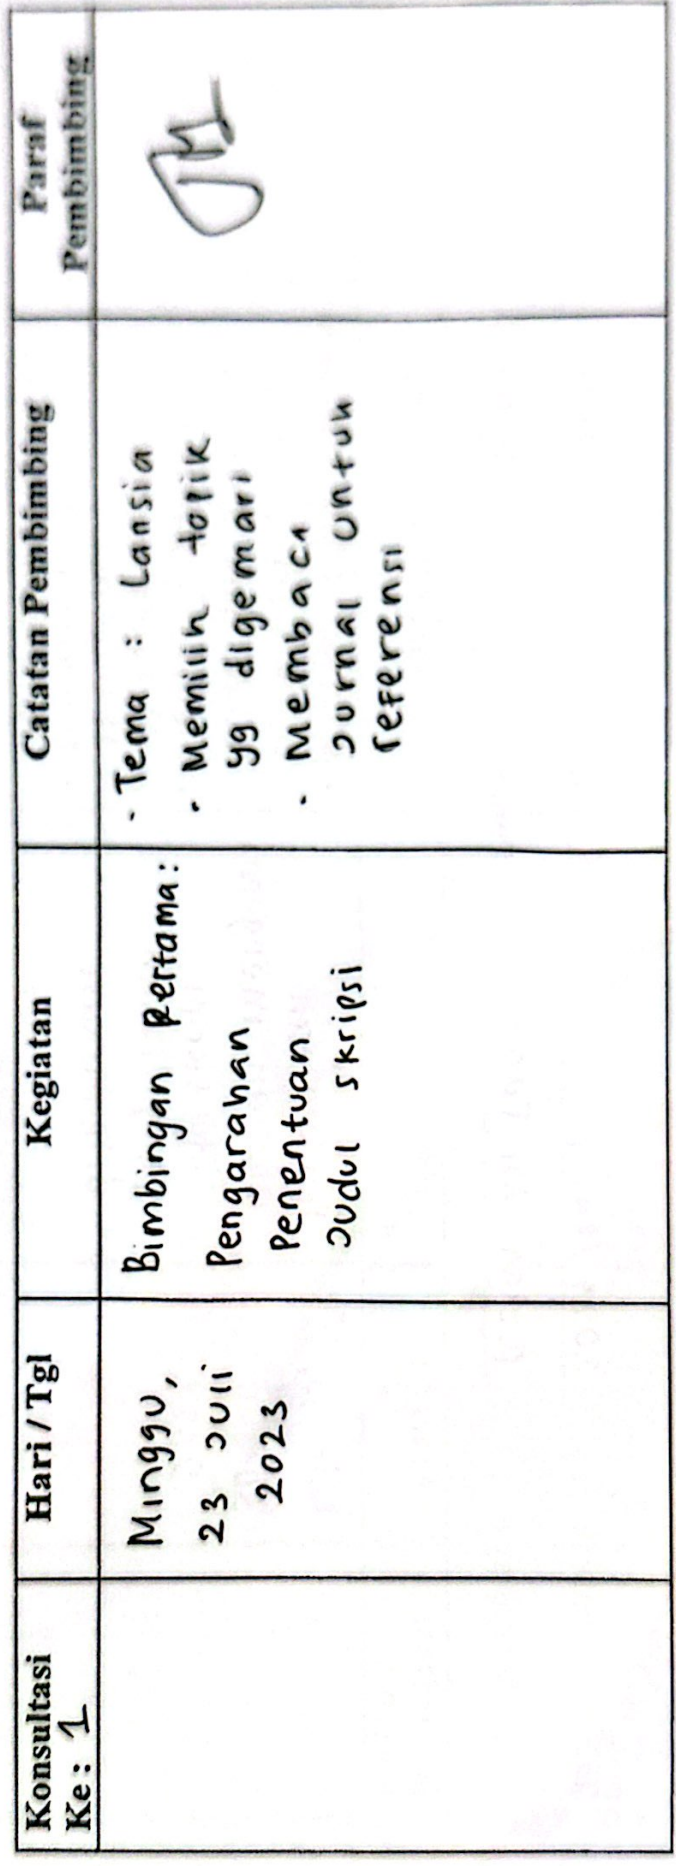 Konsultasi
Ke : 1
Hari / Tgl
Kegiatan
Catatan Pembimbing
Paraf
Pembimbing
Minggu,
23 Juli
2023
Bimbingan Pertama:
Pengarahan
Penentuan
Judul skripsi
· Tema : Lansia
· Memilih topik
yg digemari
· Membaca
Jurnal untuk
referensi